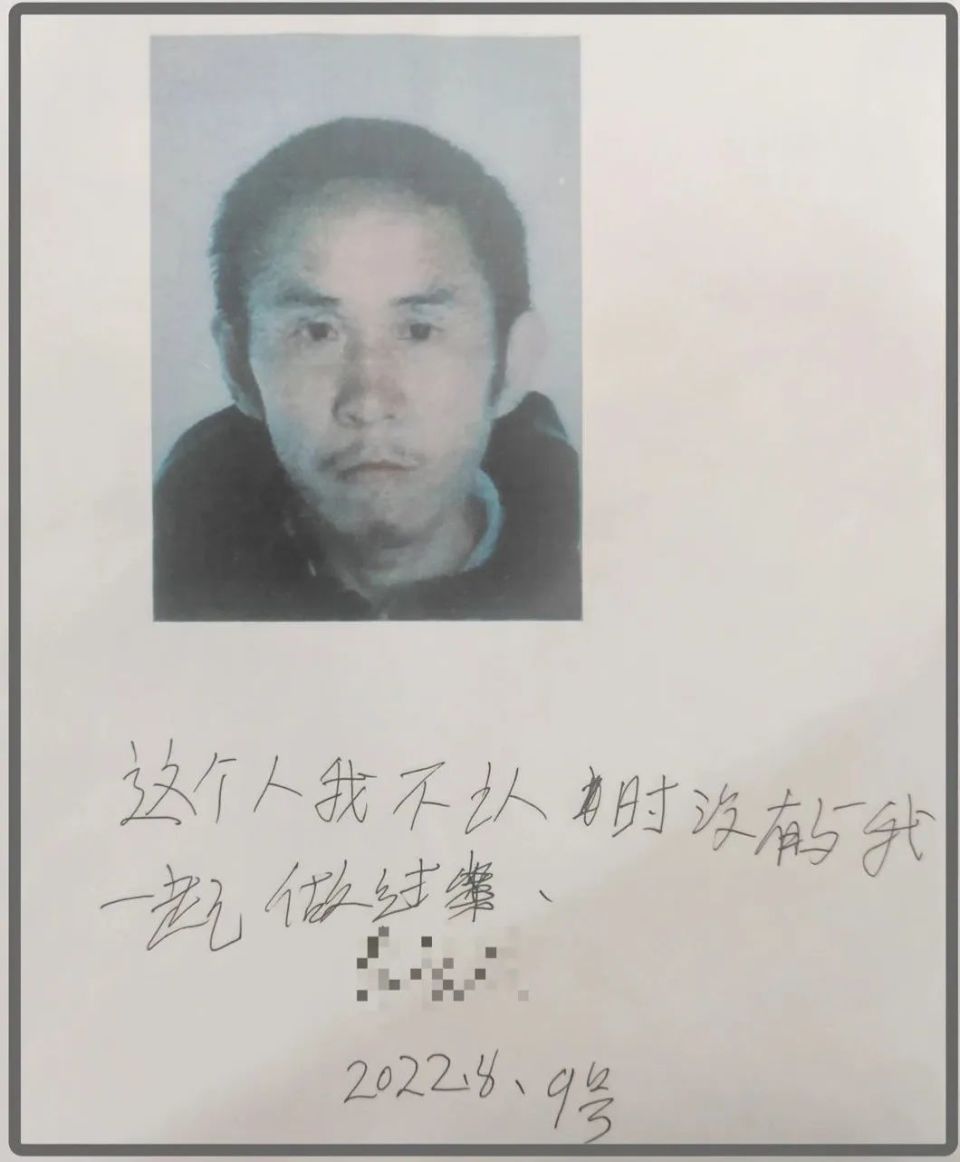 这个人我不认时没有与我
一起做过案、
2022.8、9号